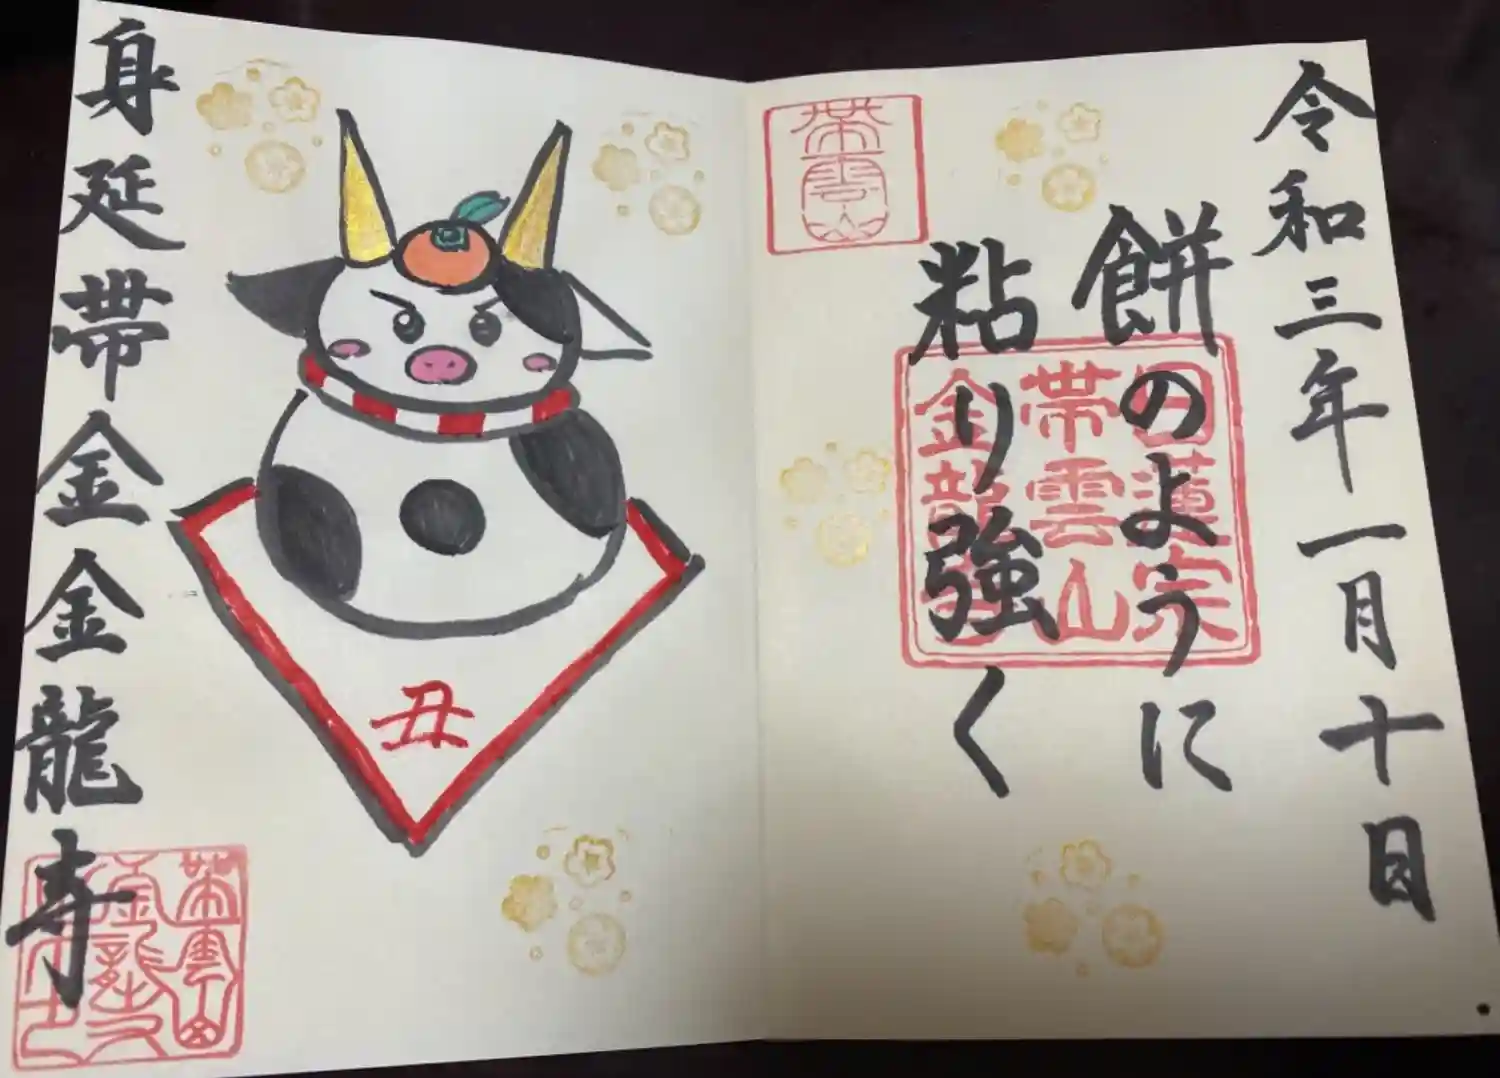 令和三年一月十日
餅のように
粘り強く
帯雲山
日蓮宗
帯雲山
金龍寺
丑
身延帯金金龍寺
帯雲山
金龍